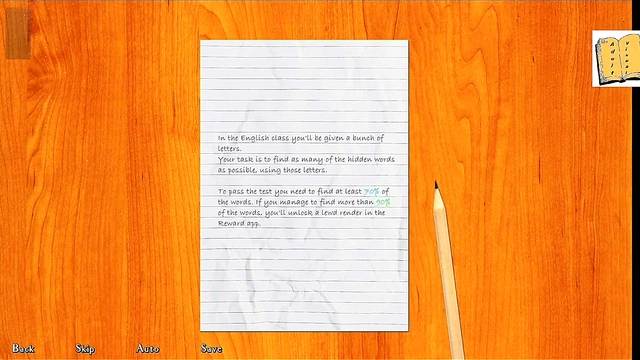 In the English class you'll be given a bunch of
letters.
Your task is to find as many of the hidden words
as possible, using those letters.
To pass the test you need to find at least 70% of
the words. If you manage to find more than 90%
of the words, you'll unlock a lewd render in the
Reward app.
Back Skip Auto Save